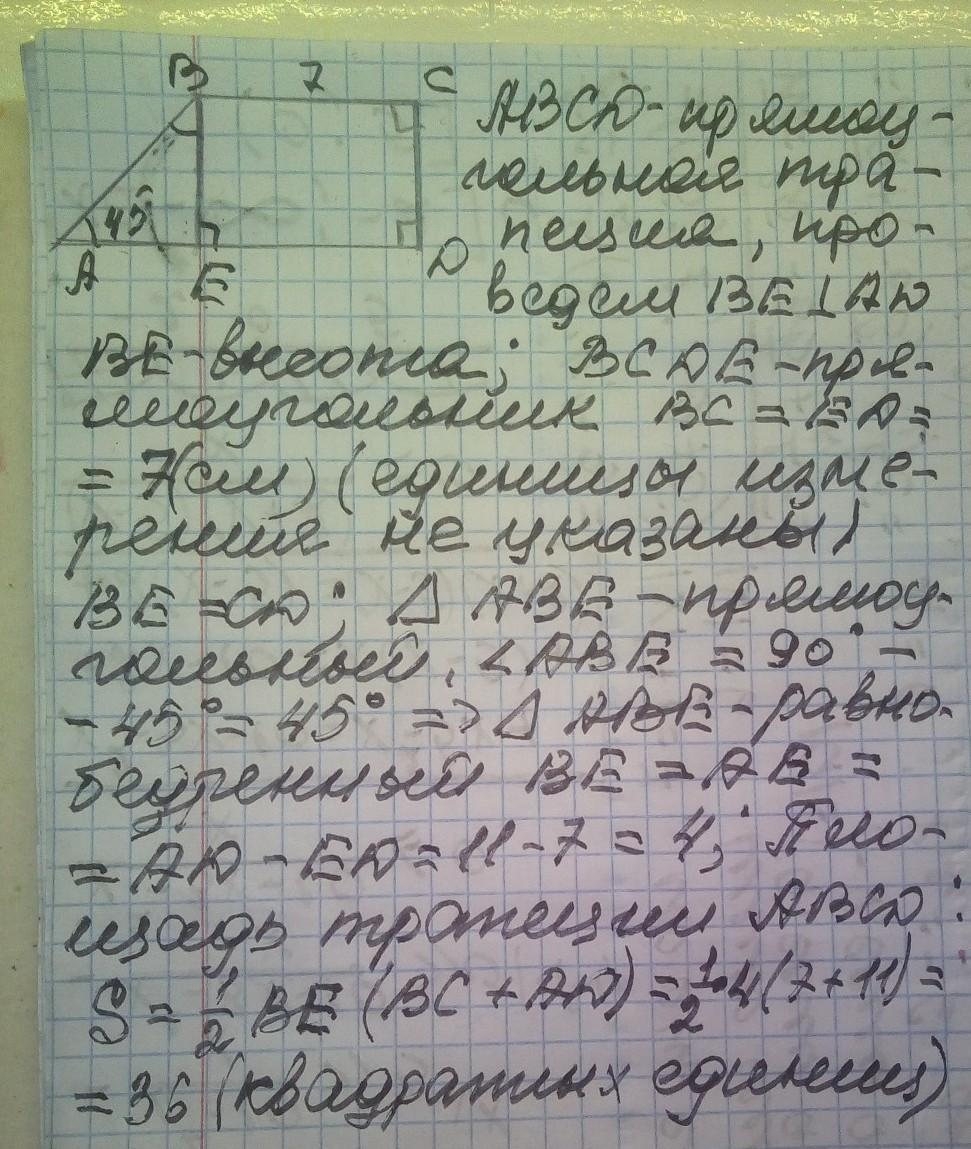 B 7 C
45°
A E D
ABCD - прямоу-
гольная тра-
пеция, про-
ведем BE⊥AD
BE - высота; BCDE - пря-
моугольник BC = ED =
= 7(см) (единицы изме-
рения не указаны)
BE = CD; △ ABE - прямоу-
гольный, <ABE = 90° -
- 45° = 45° => △ ABE - равно-
бедренный BE = AE =
= AD - ED = 11 - 7 = 4; Пло-
щадь трапеции ABCD:
S = 1/2 BE (BC + AD) = 1/2·4(7+11) =
= 36 (квадратных единиц)